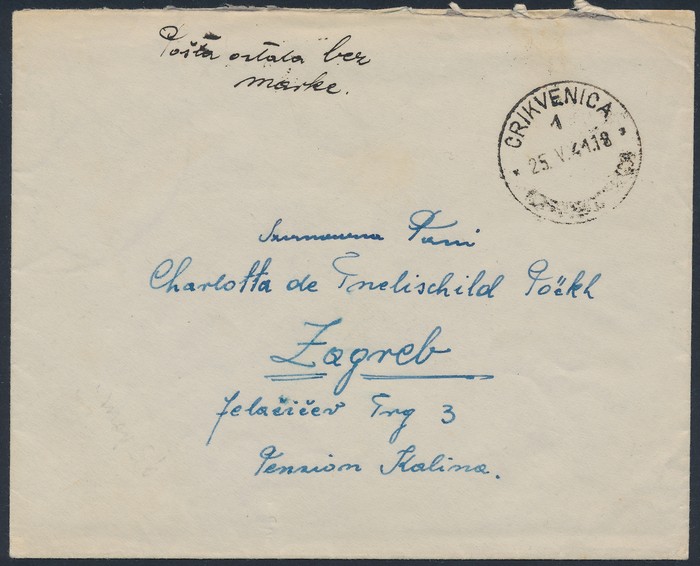 Pošta ostala bez
marke.
CRIKVENICA
1
25. V. 41.18
Pani
Charlotta de Pöckh
Zagreb
Jelačićev Trg 3
Pension Kalina.